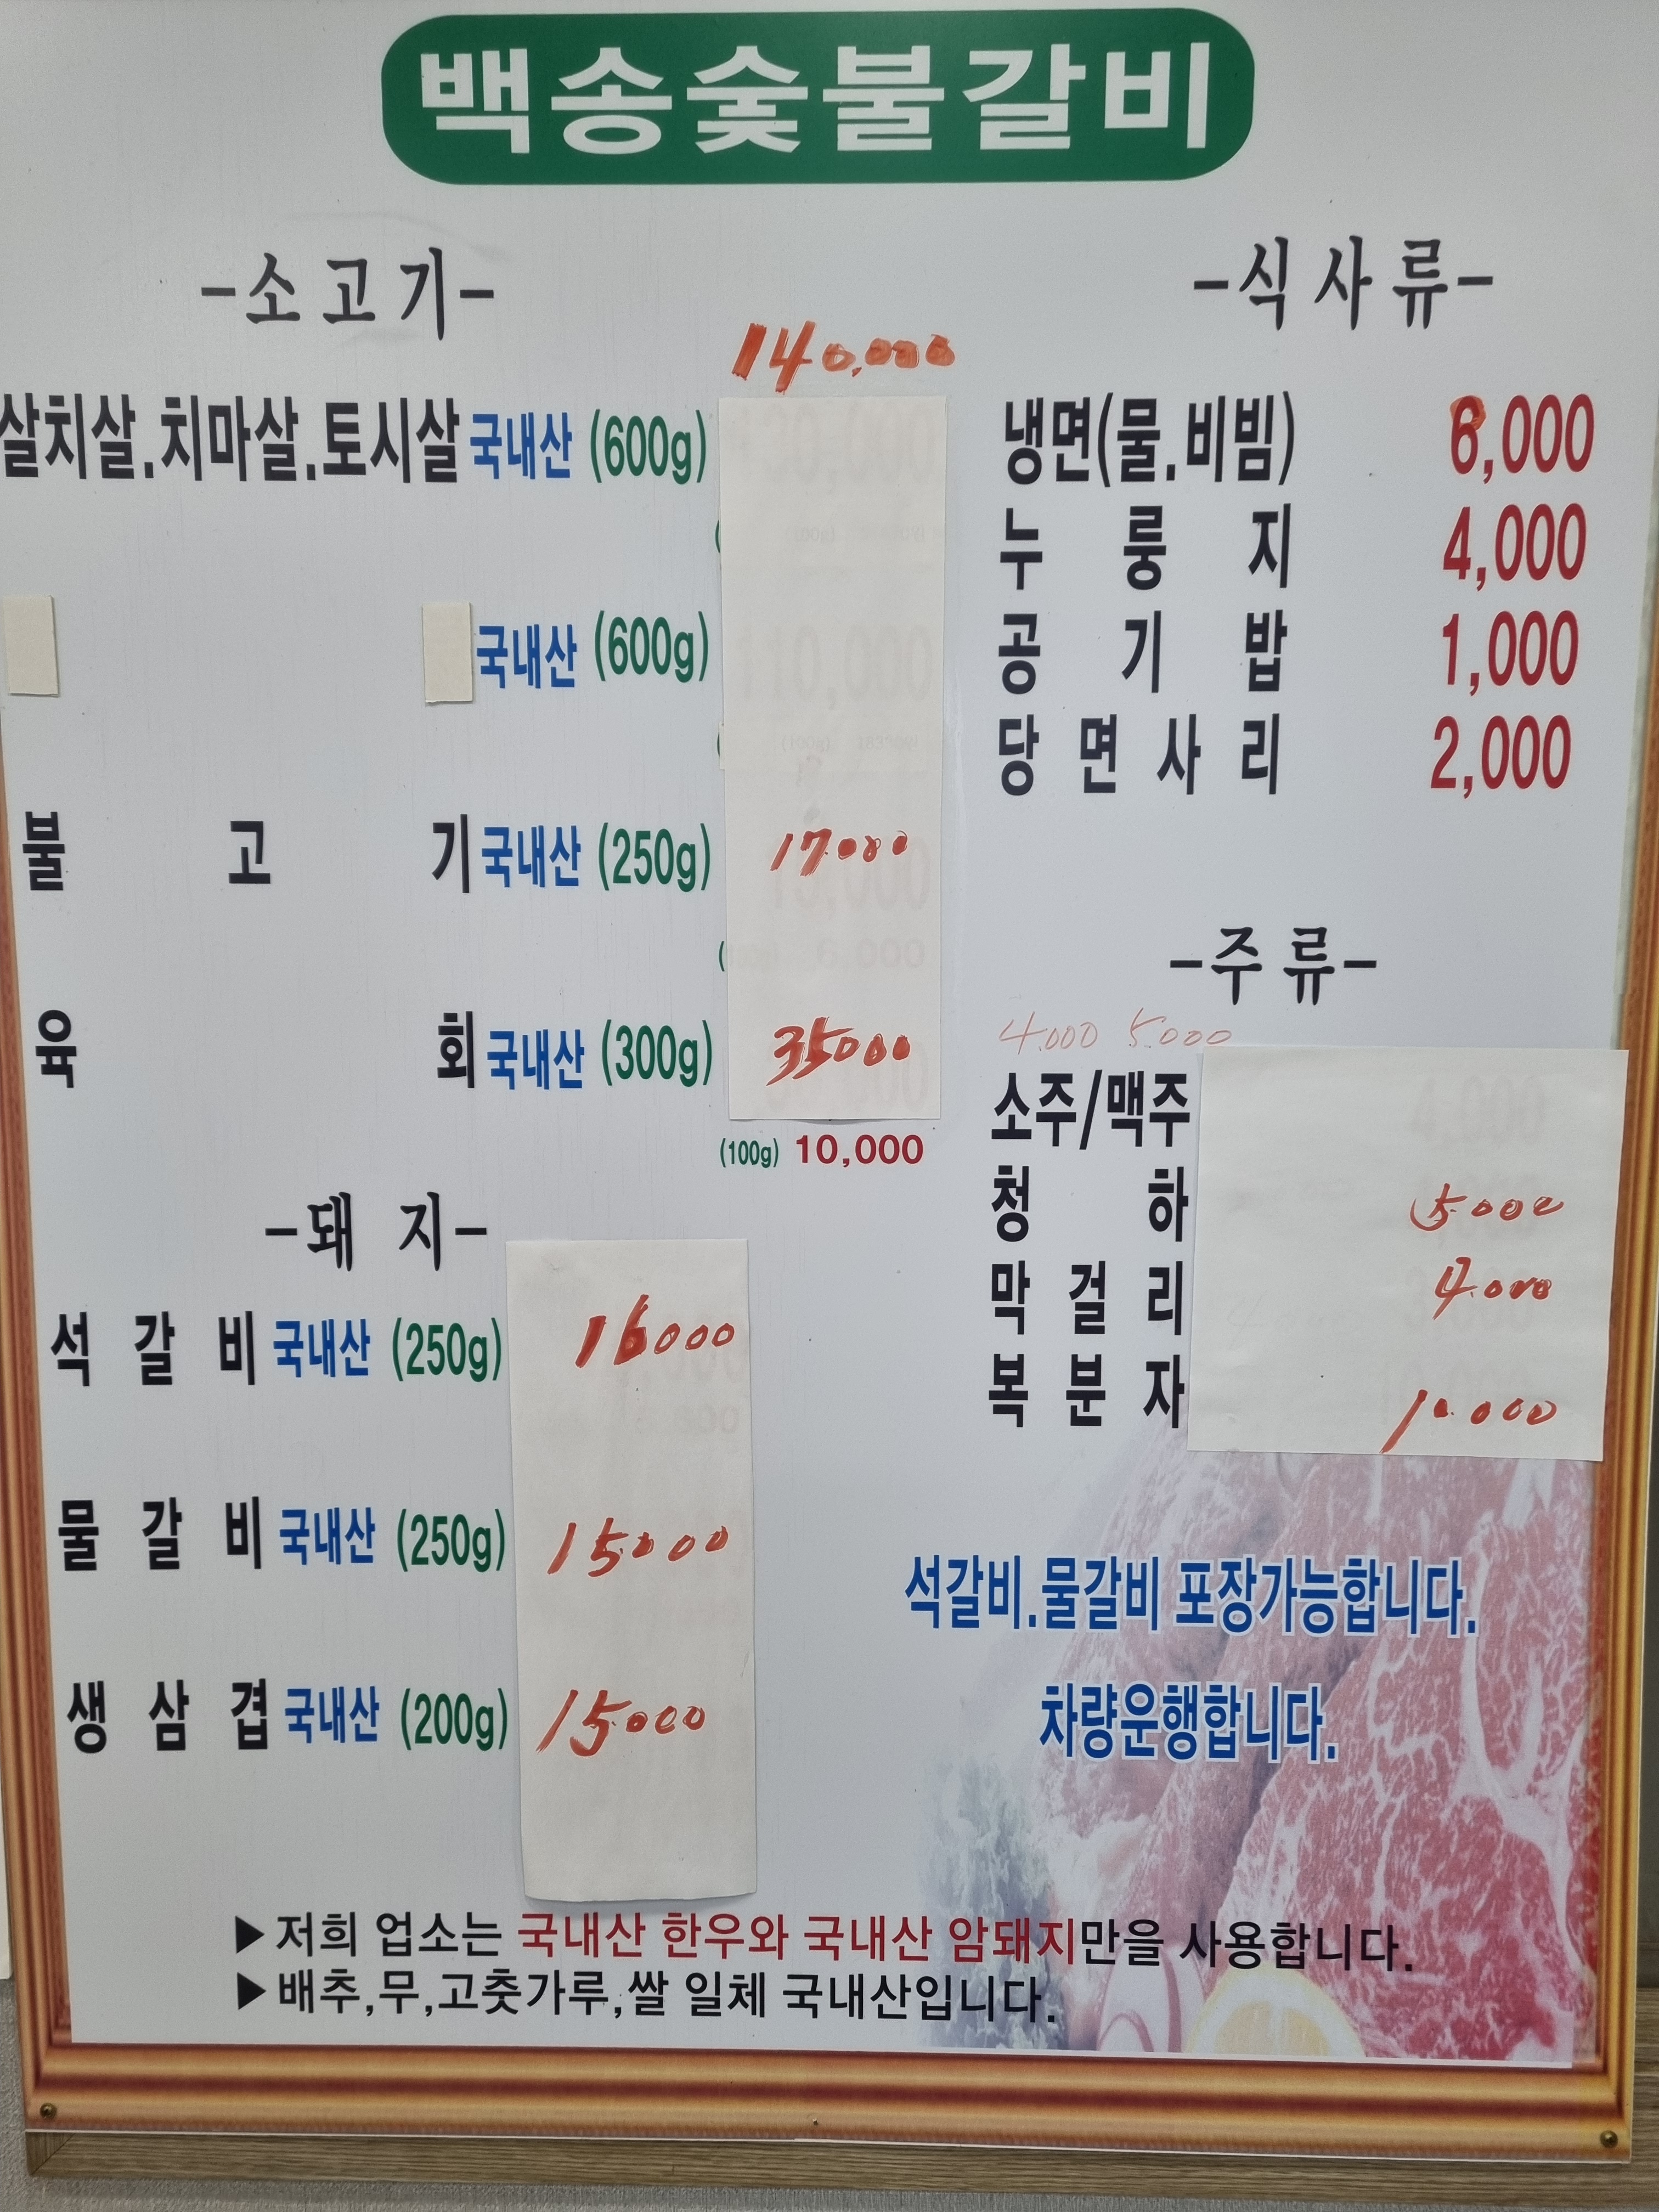 백송숯불갈비
-소고기-
140,000
살치살.치마살.토시살 국내산 (600g)
국내산 (600g)
불고기 국내산 (250g) 17000
육회 국내산 (300g) 35000
(100g) 10,000
-돼지-
석갈비 국내산 (250g) 16000
물갈비 국내산 (250g) 15000
생삼겹 국내산 (200g) 15000
-식사류-
냉면(물.비빔) 6,000
누룽지 4,000
공기밥 1,000
당면사리 2,000
-주류-
4.000 5.000
소주/맥주
청하 5.000
막걸리 4.000
복분자 10.000
석갈비.물갈비 포장가능합니다.
차량운행합니다.
▶저희 업소는 국내산 한우와 국내산 암돼지만을 사용합니다.
▶배추,무,고춧가루,쌀 일체 국내산입니다.